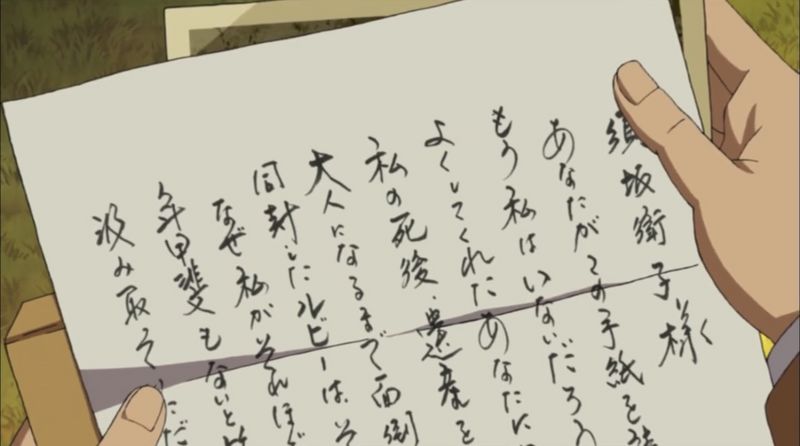 須坂衛子様
あなたがこの手紙を
もう私はいないだろう
よくしてくれたあなたに
私の死後、遺産を
大人になるまで面倒
同封したルビーは、そ
なぜ私がそれほど
年甲斐もないと
汲み取っていただ